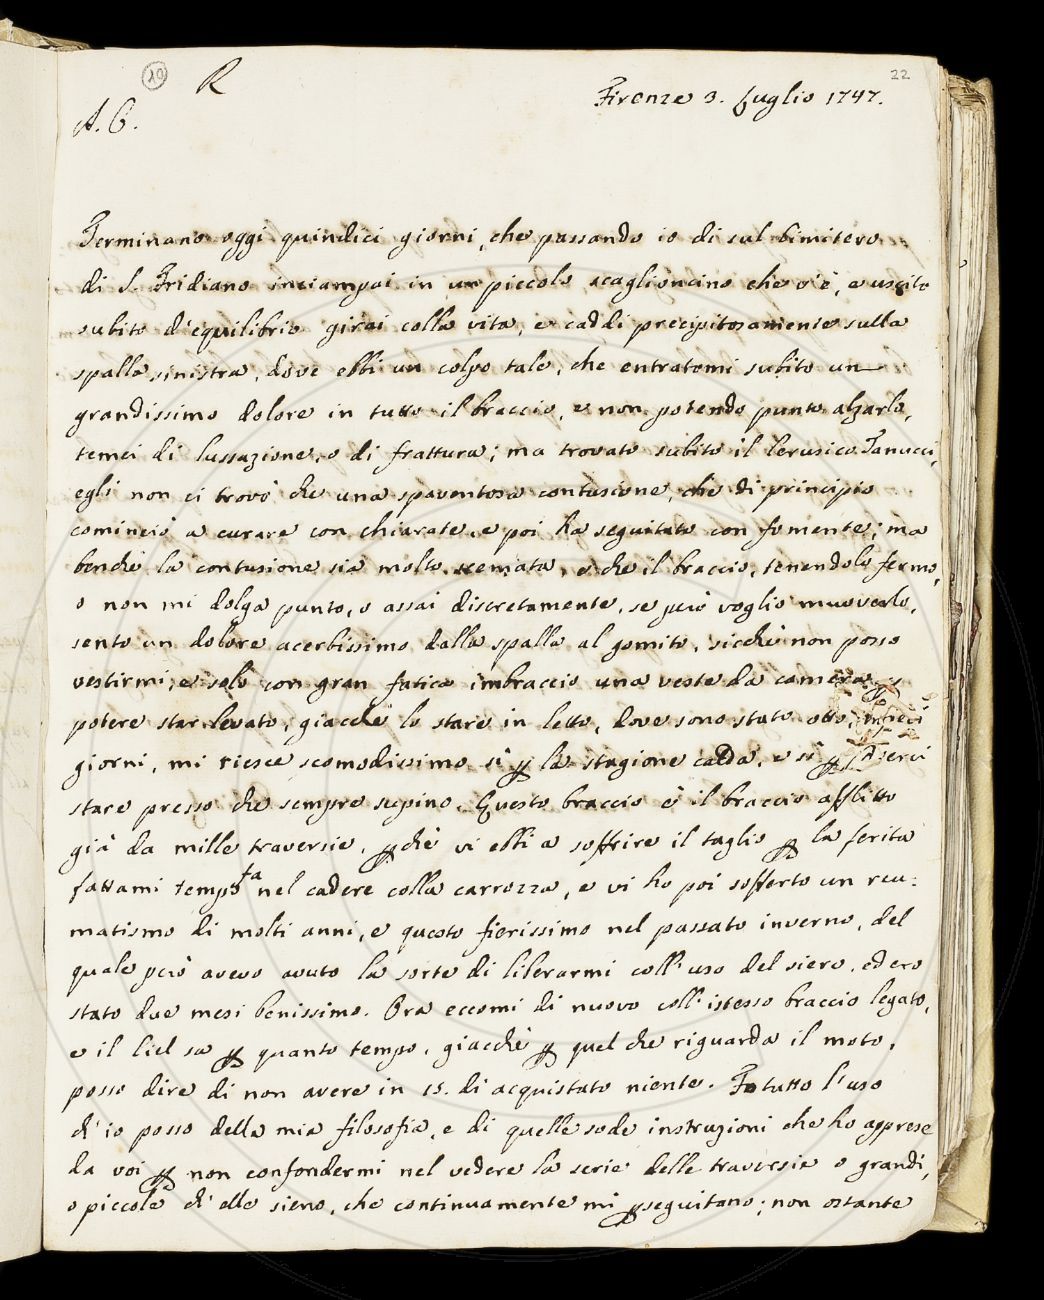 20 R 22
Firenze 3. Luglio 1747.
A. C.
Terminano oggi quindici giorni, che passando io di sul Cimitero
di S. Fridiano inciampai in un piccolo scaglioncino che v'è, e uscito
subito d'equilibrio girai colla vita, e caddi precipitosamente sulla
spalla sinistra, dove ebbi un colpo tale, che entratomi subito un
grandissimo dolore in tutto il braccio, e non potendo punto alzarlo,
temei di lussazione, o di frattura; ma trovato subito il Cerusico Tanucci,
egli non ci trovò che una spaventosa contusione, che di principio
cominciò a curare con chiarate, e poi ha seguitato con fomente; ma
benchè la contusione sia molto scemata, e che il braccio, tenendolo fermo,
o non mi dolga punto, o assai discretamente, se però voglio muoverlo,
sento un dolore acerbissimo dalla spalla al gomito, sicchè non posso
vestirmi, e solo con gran fatica imbraccio una veste da camera p
potere star levato, giacchè lo stare in letto, dove sono stato otto, o dieci
giorni, mi riesce scomodissimo sì p la stagione calda, e sì p
stare presso che sempre supino. Questo braccio è il braccio afflitto
già da mille traversie, pchè vi ebbi a soffrire il taglio p la ferita
fattami tempo fa nel cadere colla carrozza, e vi ho poi sofferto un reu:
matismo di molti anni, e questo fierissimo nel passato inverno, del
quale però avevo avuto la sorte di liberarmi coll'uso del siero, ed ero
stato due mesi benissimo. Ora eccomi di nuovo coll'istesso braccio legato,
e il Ciel sa p quanto tempo, giacchè p quel che riguarda il moto,
posso dire di non avere in 15. dì acquistato niente. Fo tutto l'uso
ch'io posso della mia filosofia, e di quelle sode instruzioni che ho apprese
da voi p non confondermi nel vedere la serie delle traversie o grandi,
o piccole ch'elle sieno, che continuamente mi pseguitano; non ostante